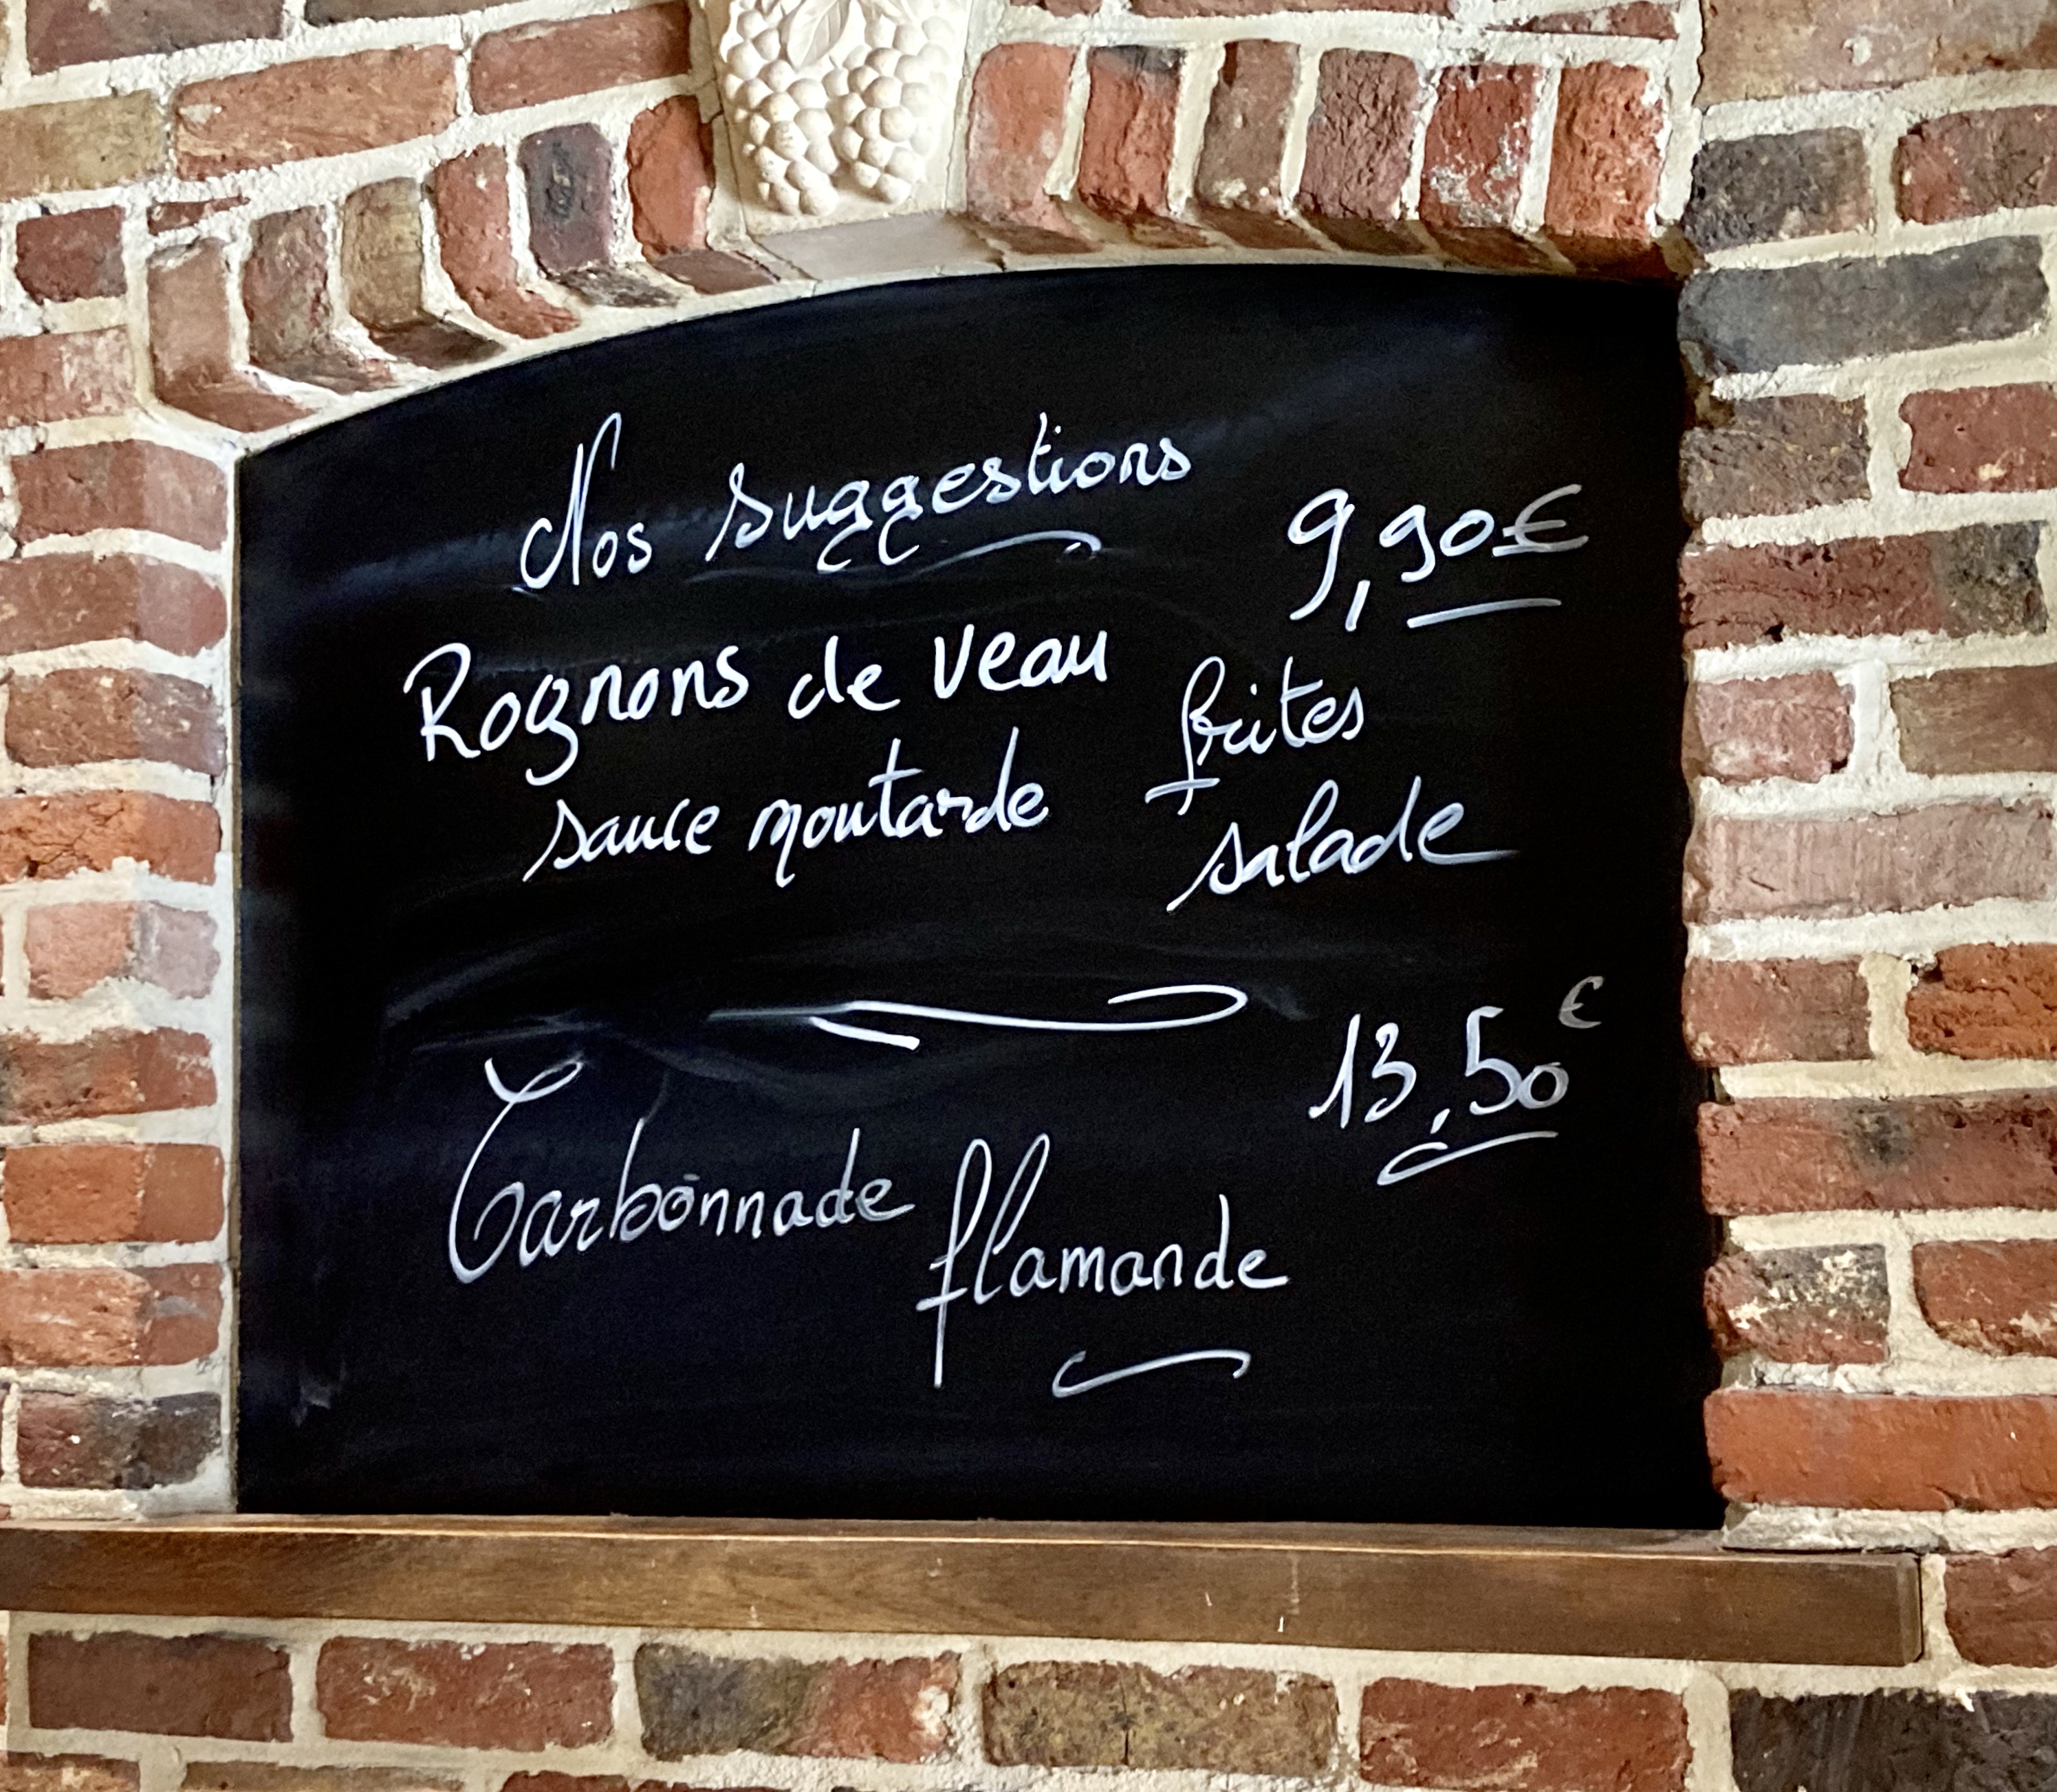 Nos suggestions
9,90€
Rognons de veau
sauce moutarde
frites
+
salade
13,50€
Carbonnade
flamande